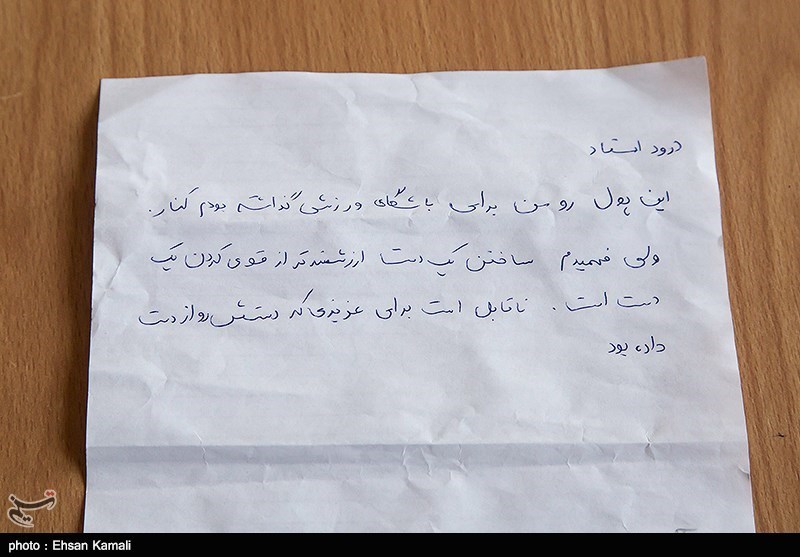 درود استاد
این پول رو من برای باشگاه ورزشی گذاشته بودم کنار.
ولی فهمیدم ساختن یک دست ارزشمندتر از قوی کردن یک
دست است. ناقابل است برای عزیزی که دستش رو از دست
داده بود
تسنیم
photo : Ehsan Kamali